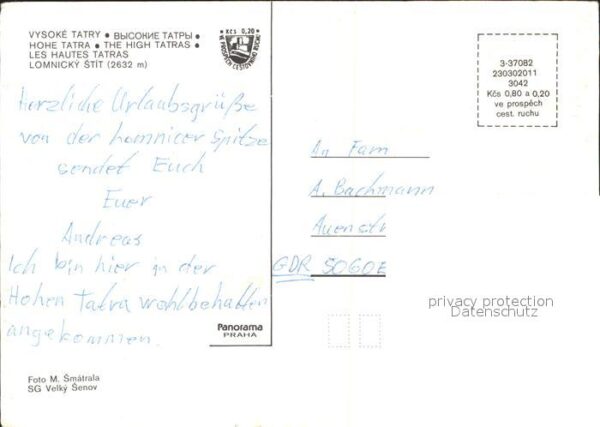 VYSOKÉ TATRY • ВЫСОКИЕ ТАТРЫ •
HOHE TATRA • THE HIGH TATRAS •
LES HAUTES TATRAS
LOMNICKÝ ŠTÍT (2632 m)
Kčs 0,20
VE PROSPĚCH CESTOVNÍHO RUCHU
3-37082
230302011
3042
Kčs 0,80 a 0,20
ve prospěch
cest. ruchu
Herzliche Urlaubsgrüße
von der Lomnicer Spitze
sendet Euch
Euer
Andreas
Ich bin hier in der
Hohen Tatra wohlbehalten
angekommen.
An Fam.
A. Bachmann
Auenstr
GDR 5060E
privacy protection
Datenschutz
Panorama
PRAHA
Foto M. Šmátrala
SG Velký Šenov